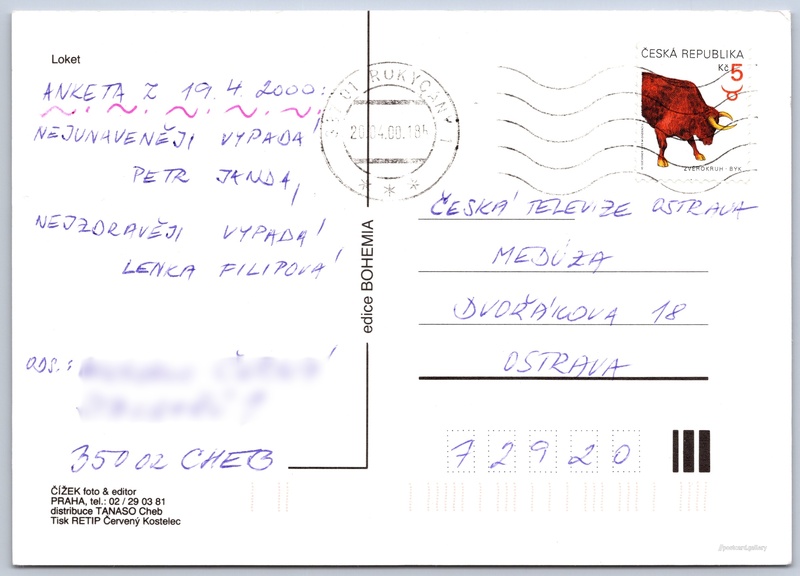 Loket
ANKETA Z 19. 4. 2000:
NEJUNAVENĚJI VYPADÁ
PETR JANDA,
NEJZDRAVĚJI VYPADÁ
LENKA FILIPOVÁ
ODS.:
35002 CHEB
ČÍŽEK foto & editor
PRAHA, tel.: 02 / 29 03 81
distribuce TANASO Cheb
Tisk RETIP Červený Kostelec
edice BOHEMIA
20.04.00.18h
ČESKÁ REPUBLIKA
Kč 5
ZVĚROKRUH - BÝK
ČESKÁ TELEVIZE OSTRAVA
MEDÚZA
DVOŘÁKOVA 18
OSTRAVA
72920